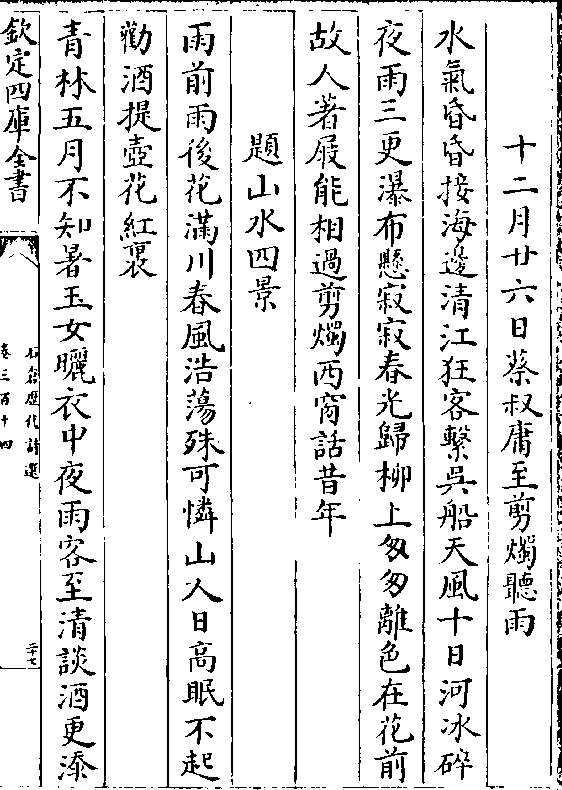 十二月廿六日蔡叔庸至剪燭聽雨
水氣昏昏接海邊清江狂客繫吳船天風十日河冰碎
夜雨三更瀑布懸寂寂春光歸柳上匆匆離色在花前
故人著屐能相過剪燭西窗話昔年
題山水四景
雨前雨後花滿川春風浩蕩殊可憐山人日高眠不起
勸酒提壺花紅裏
青林五月不知暑玉女曬衣中夜雨客至清談酒更添
欽定四庫全書
石倉歷代詩選
卷三百十四
二十七